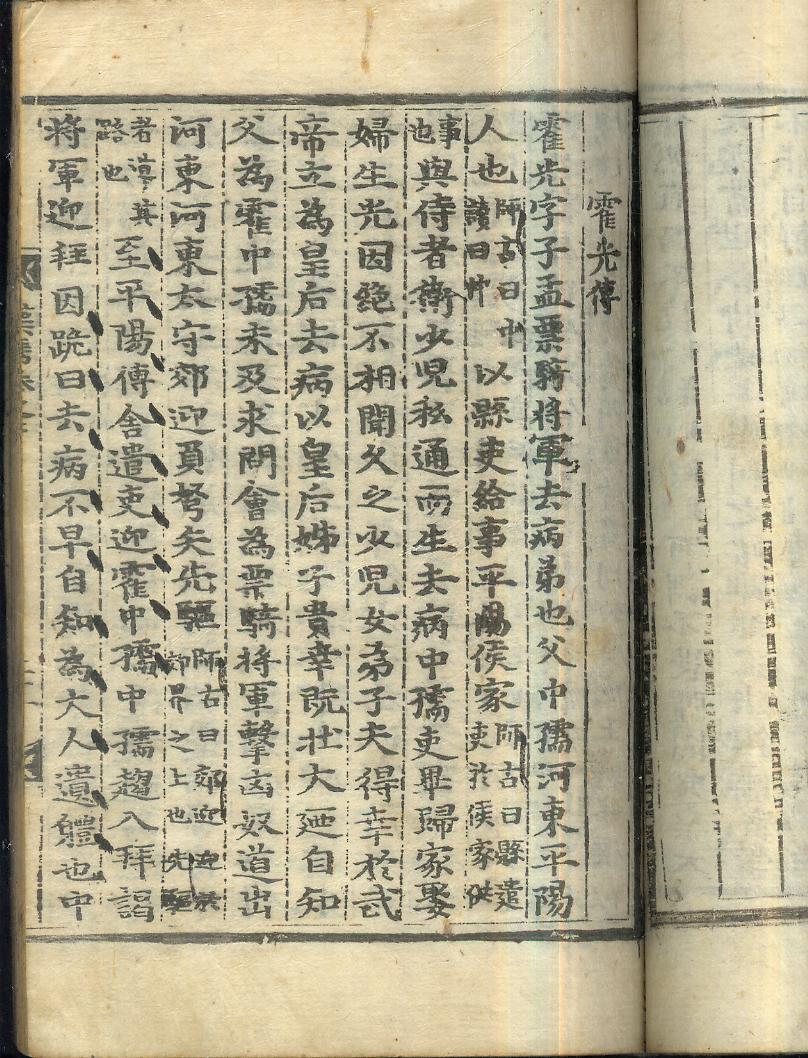 霍光傳
霍光字子孟票騎將軍去病弟也父中孺河東平陽
人也師古曰中讀曰仲以縣吏給事平陽侯家師古曰縣遣吏於侯家供
事也與侍者衛少児私通而生去病中孺吏畢歸家娶
婦生光因絶不相聞久之少児女弟子夫得幸於武
帝立為皇后去病以皇后姊子貴幸既壯大廼自知
父為霍中孺未及求問會為票騎將軍擊匈奴道出
河東河東太守郊迎負弩矢先驅師古曰郊迎迎於郊界之上也先驅
者導其路也至平陽傳舎遣吏迎霍中孺中孺趨入拜謁
將軍迎拜因跪曰去病不早自知為大人遺體也中